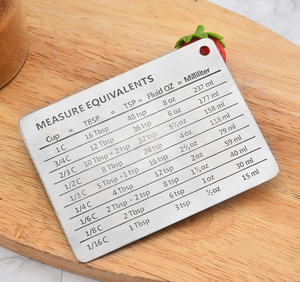 MEASURE EQUIVALENTS
Cup = TBSP = TSP = Fluid OZ = Milliliter
1 C 16 Tbsp 48 tsp 8 oz 237 ml
3/4 C 12 Tbsp 36 tsp 6 oz 177 ml
2/3 C 10 Tbsp + 2 tsp 32 tsp 5⅓ oz 158 ml
1/2 C 8 Tbsp 24 tsp 4 oz 118 ml
1/3 C 5 Tbsp + 1 tsp 16 tsp 2⅔ oz 79 ml
1/4 C 4 Tbsp 12 tsp 2 oz 59 ml
1/6 C 2 Tbsp + 2 tsp 8 tsp 1⅓ oz 40 ml
1/8 C 2 Tbsp 6 tsp 1 oz 30 ml
1/16 C 1 Tbsp 3 tsp ½ oz 15 ml